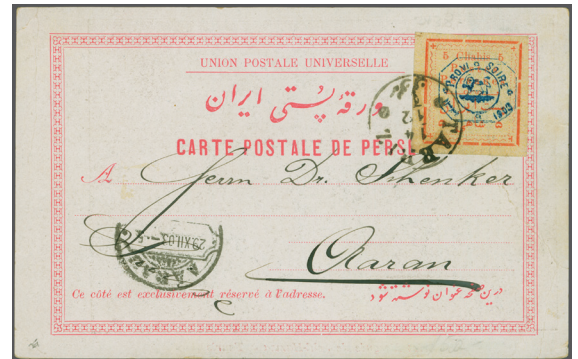 UNION POSTALE UNIVERSELLE
ورقهٔ پستی ایران
CARTE POSTALE DE PERSE
5 Chahis 5
PROVISOIRE
1319
TABRIZ
A Herrn Dr. Schenker
Aarau
AARAU
29.XII.02
Ce côté est exclusivement réservé à l'adresse.
درین صفحه عنوان نوشته شود